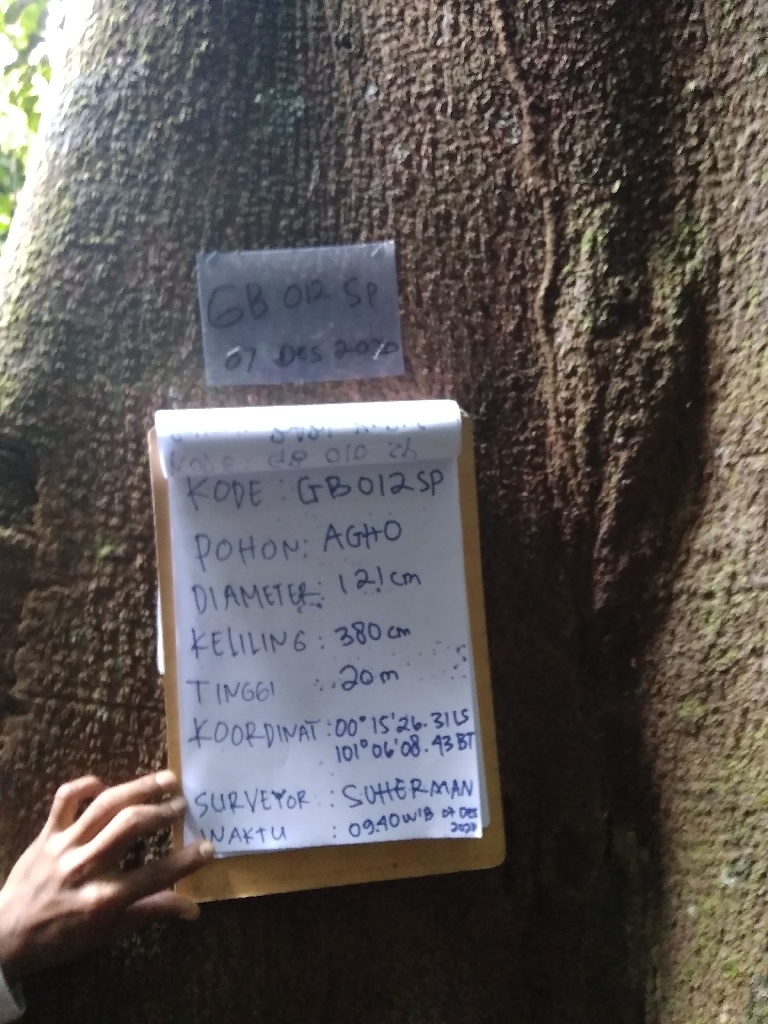 GB 012 SP
07 DES 2020
KODE : GB012SP
POHON: AGHO
DIAMETER: 121cm
KELILING : 380 cm
TINGGI : 20m
KOORDINAT : 00°15'26.31LS
101°06'08.43 BT
SURVEYOR : SUHERMAN
WAKTU : 09.40 WIB 07 DES
2020